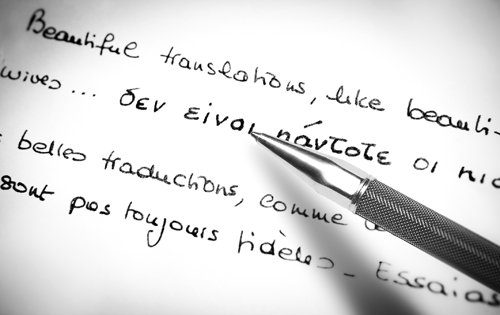 Beautiful translations, like beauti
wives... δεν είναι πάντοτε οι πισ
belles traductions, comme
sont pas toujours fidèles_ Essaias